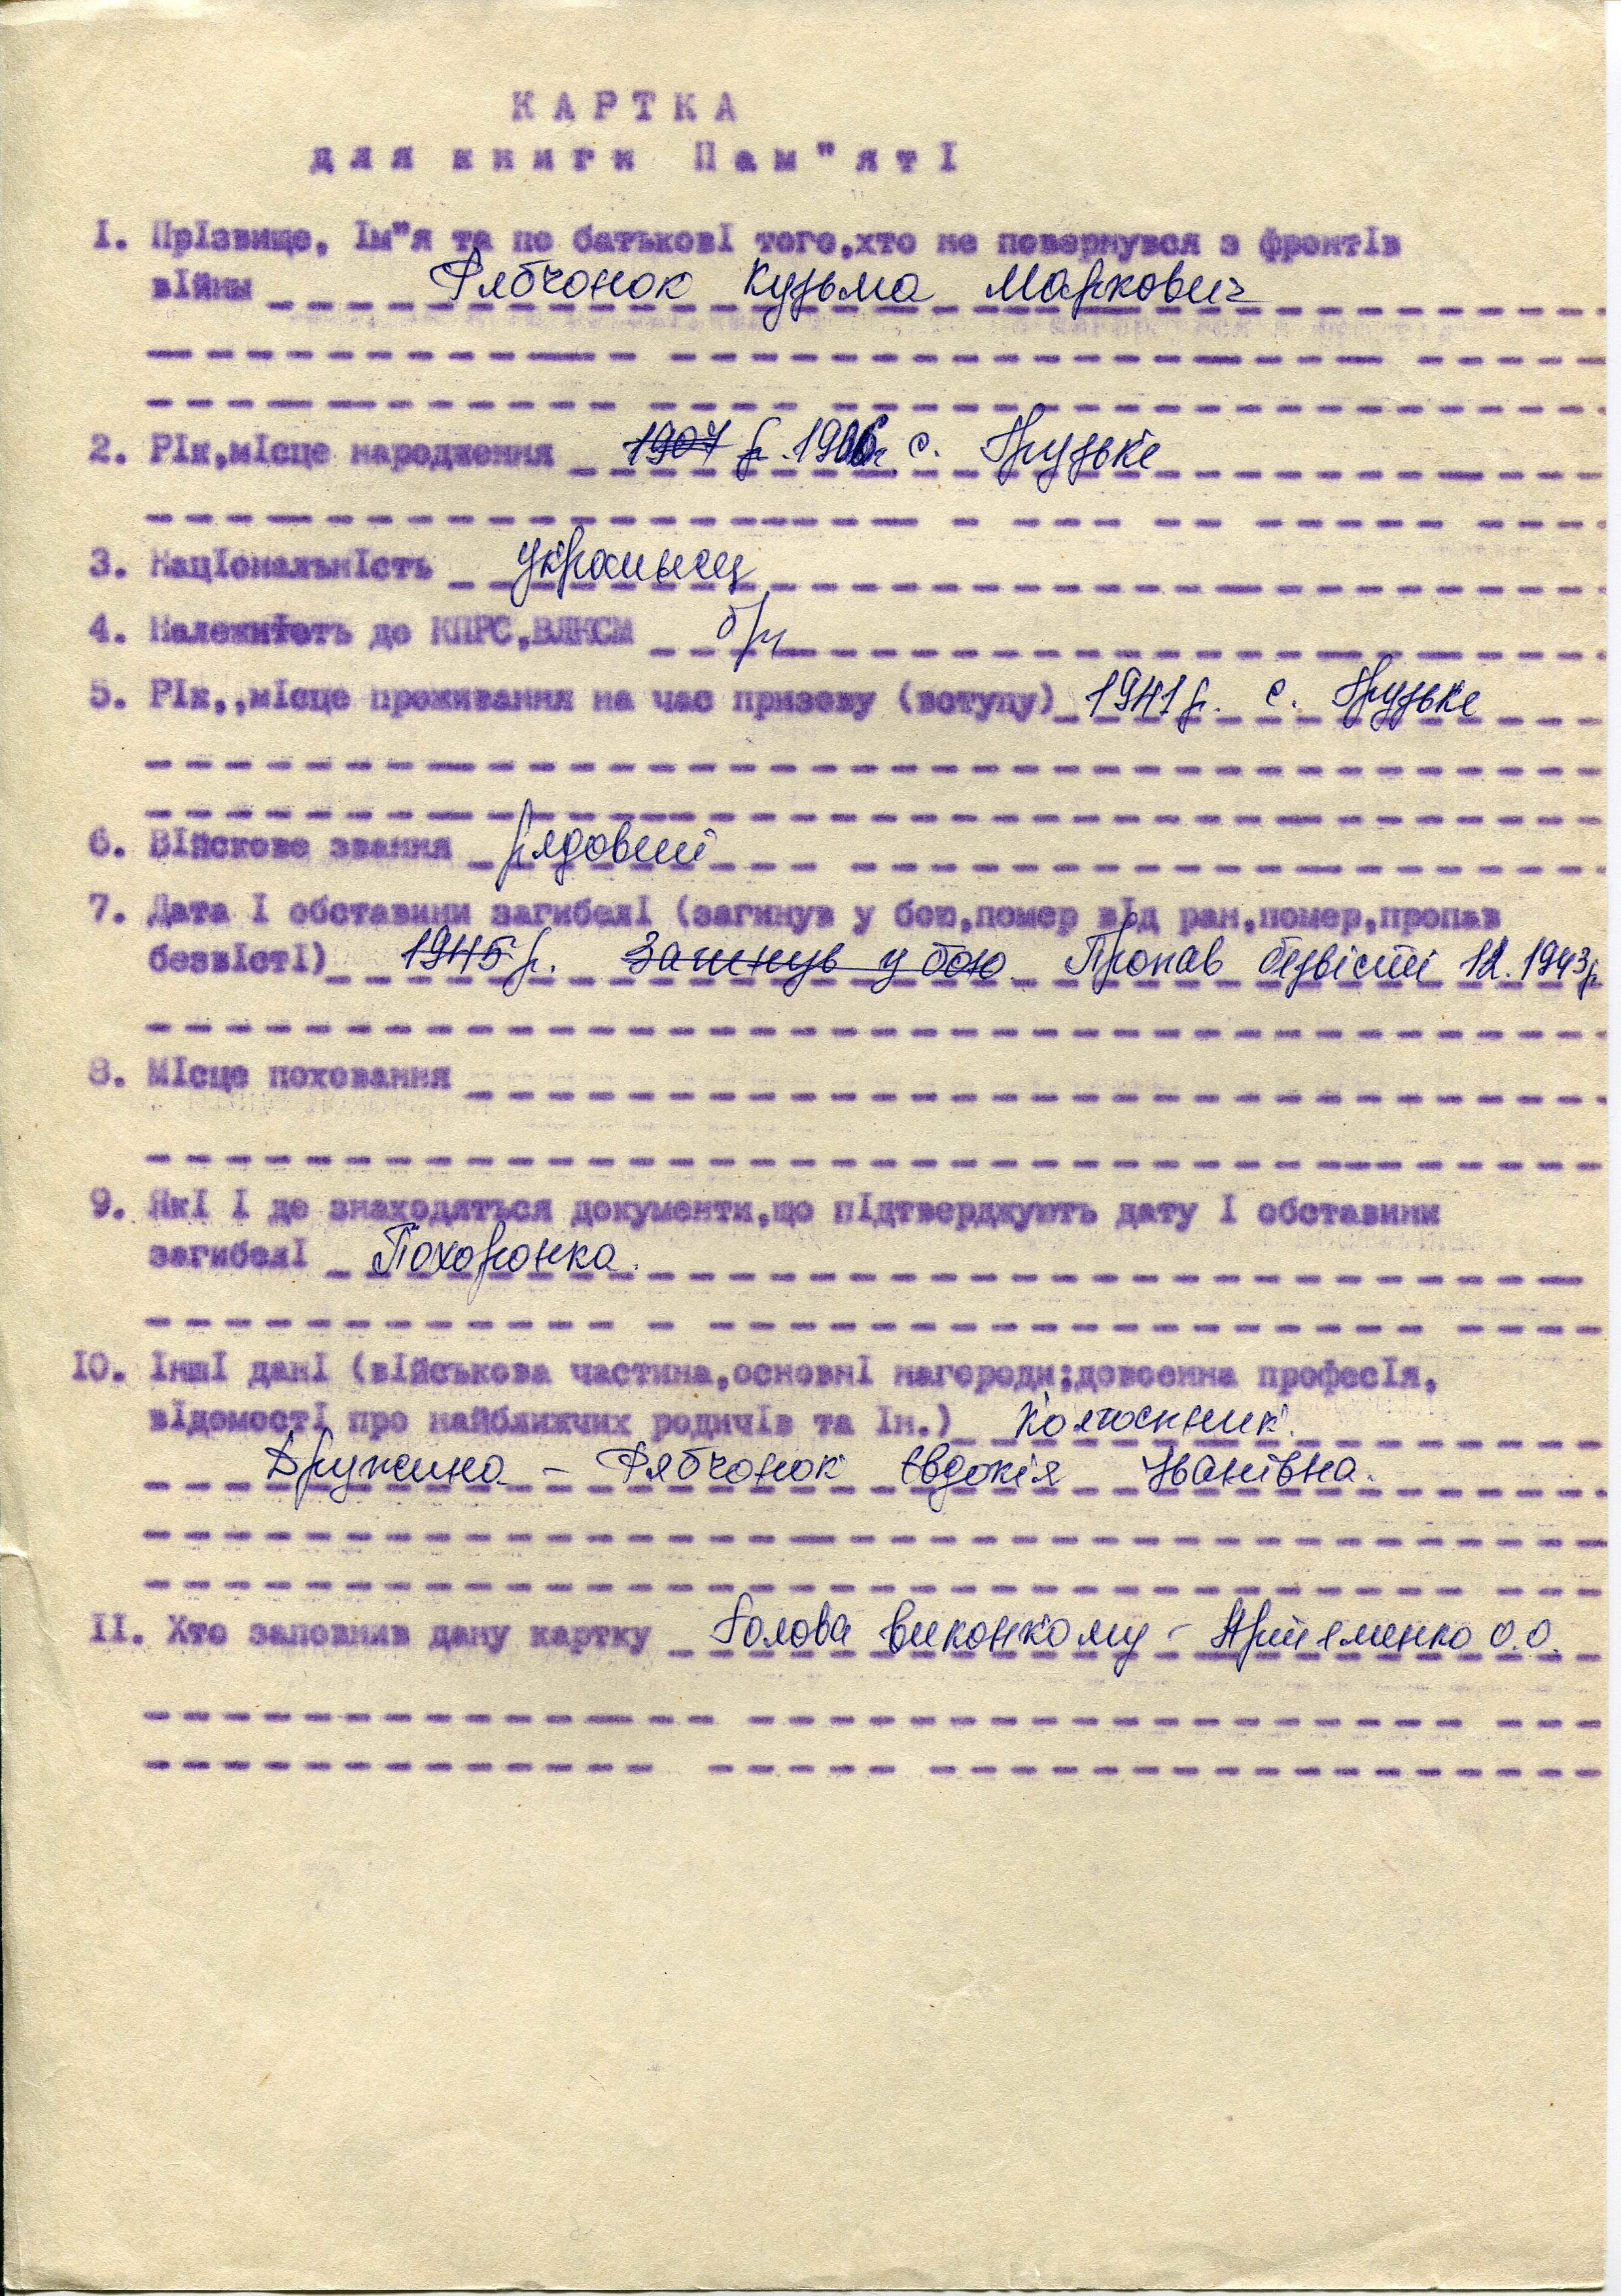 КАРТКА
для книги Пам"яті
І. Прізвище, Ім"я та по батькові того,хто не повернувся з фронтів
війни Рябчонок Кузьма Маркович
2. Рік,місце народження 1907 р. 1906г с. Грузьке
3. Національність українець
4. Належність до КПРС,ВЛКСМ б/п
5. Рік,,місце проживання на час призову (вступу) 1941 р. с. Грузьке
6. Війскове звання рядовий
7. Дата і обставини загибелі (загинув у бою,помер від ран,помер,пропав
безвісті) 1945 р. Загинув у бою Пропав безвісті 12.1943р
8. Місце поховання
9. Які і де знаходяться документи,що підтверджують дату і обставини
загибелі Похоронка.
ІО. Інші дані (військова частина,основні нагороди;довоенна професія,
відомості про найближчих родичів та ін.) Колгоспник.
Дружина – Рябчонок Евдокія Іванівна.
ІІ. Хто заповнив дану картку Голова виконкому – Артеменко О.О.